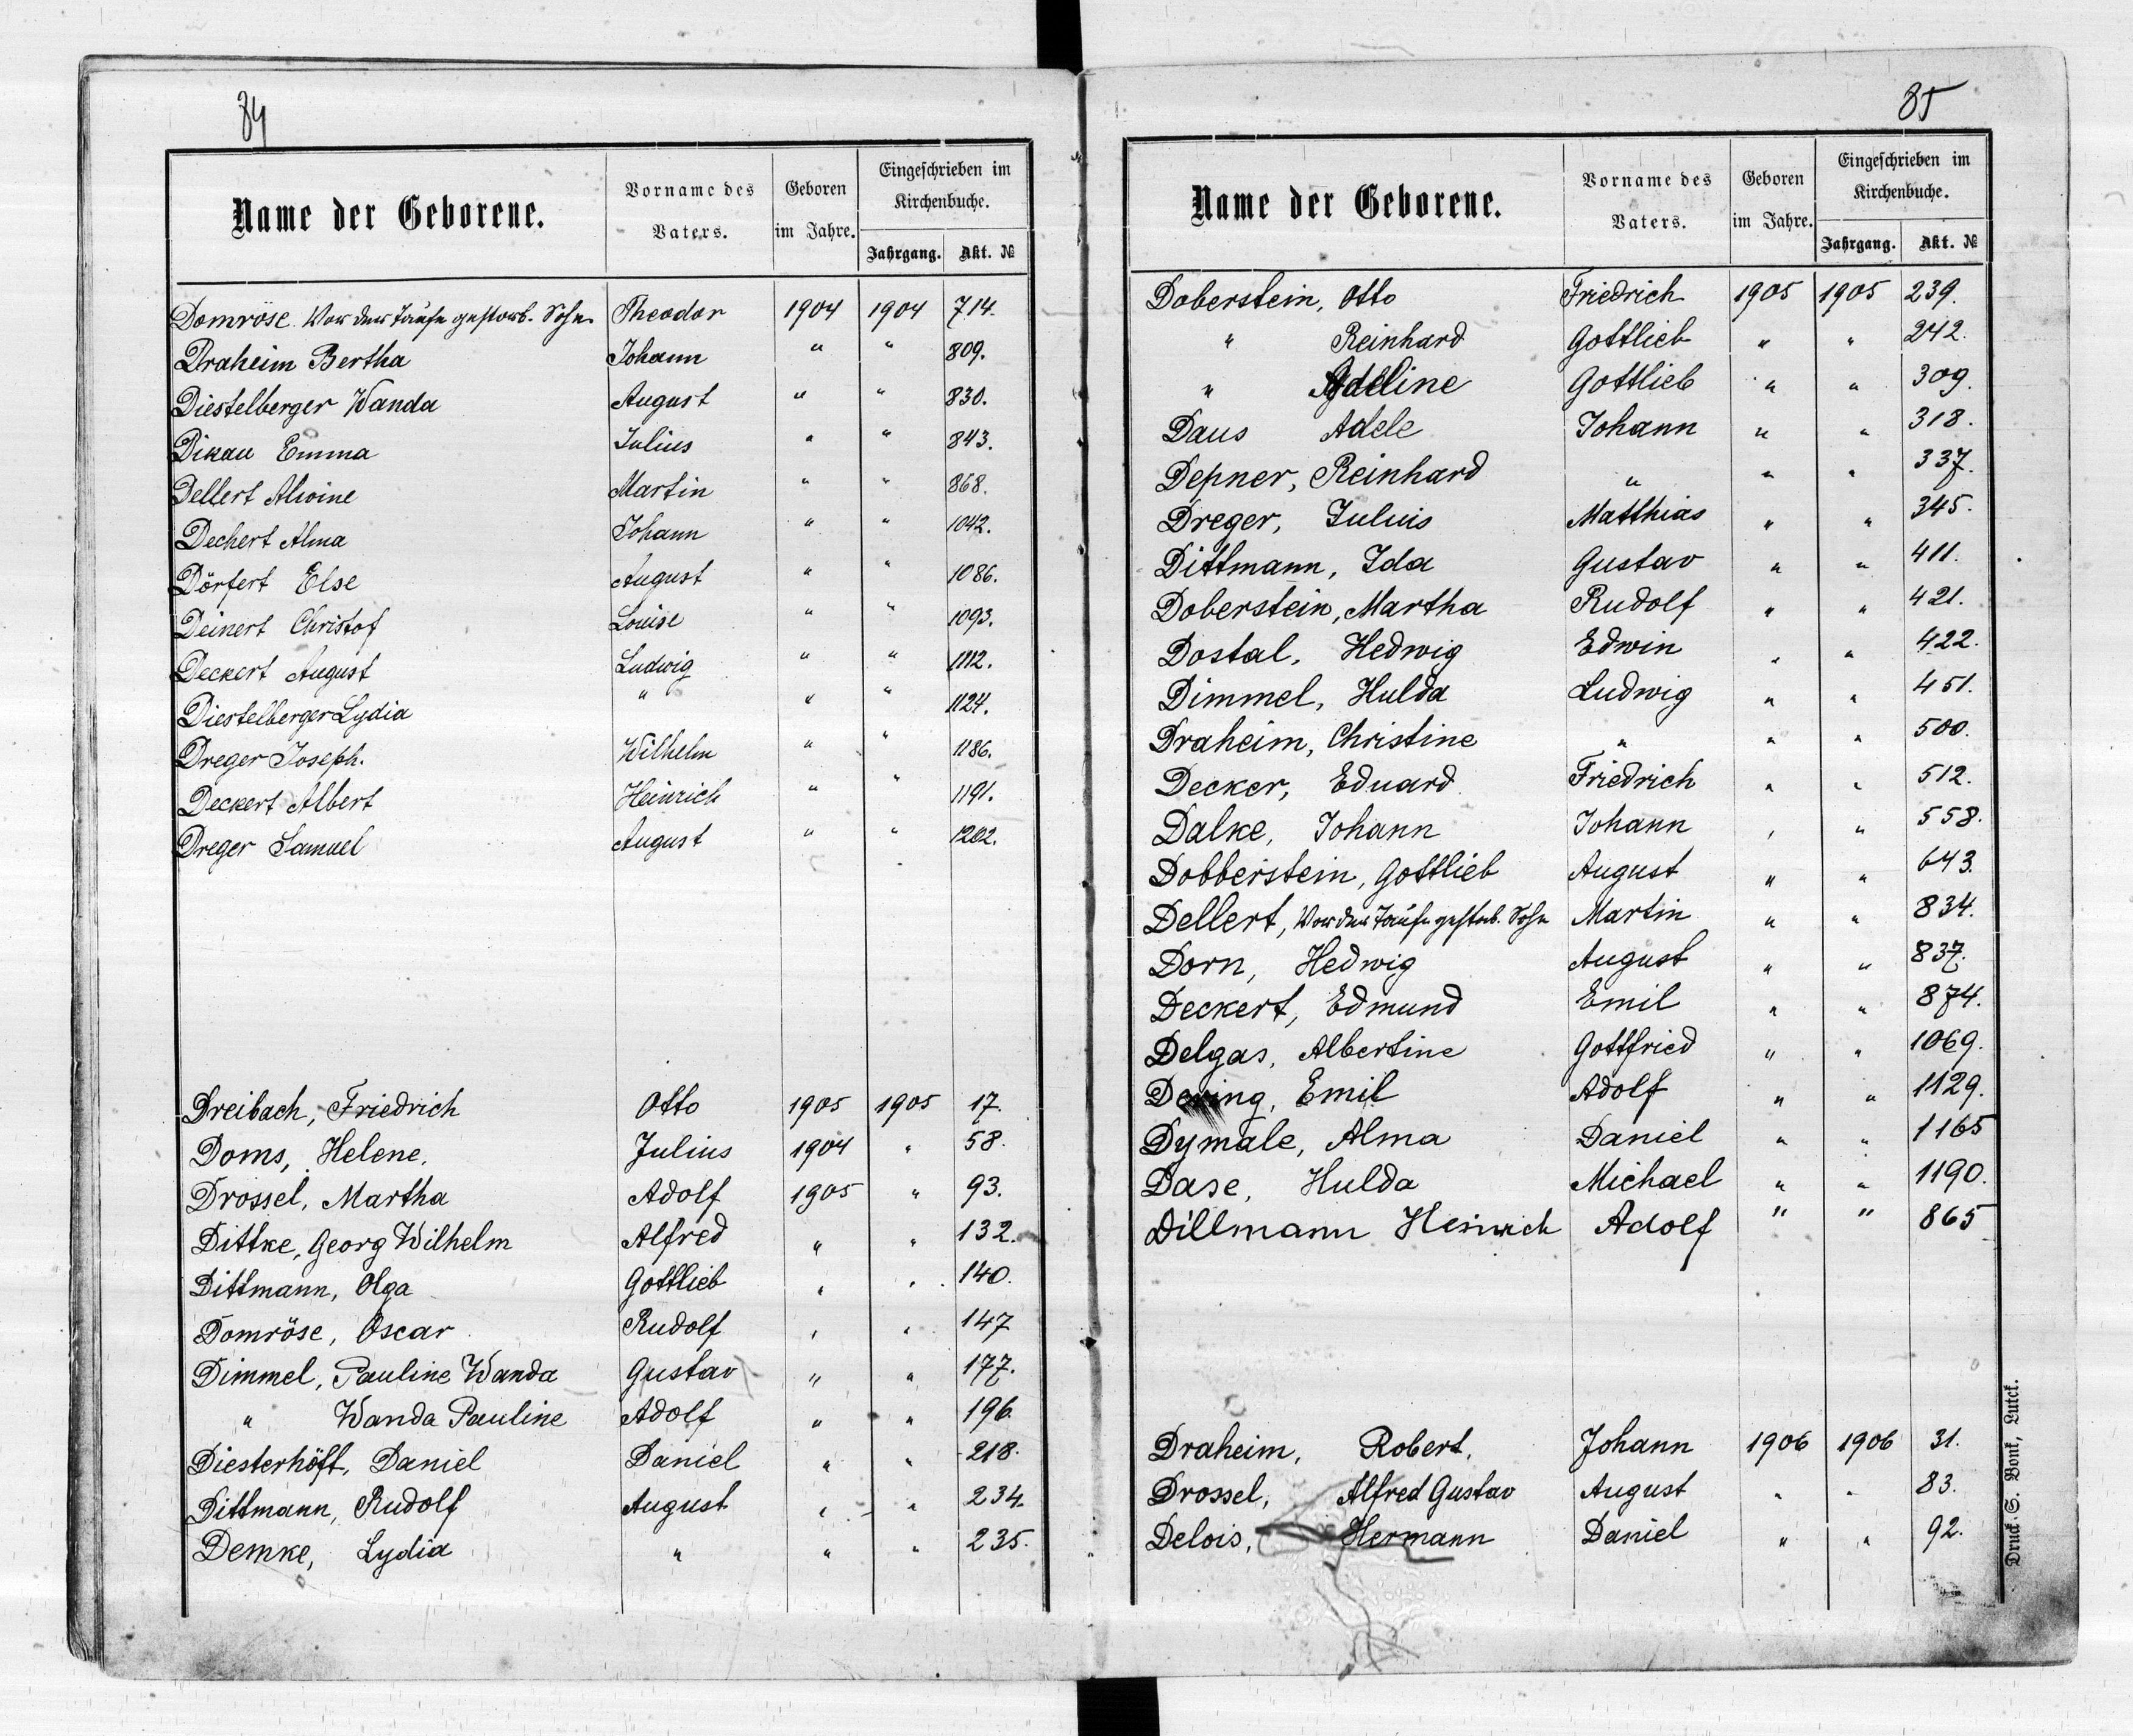 84
Name der Geborene. Vorname des Vaters. Geboren im Jahre. Eingeschrieben im Kirchenbuche. Jahrgang. Akt. №
Domröse Vor der Taufe gestorb. Sohn Theodor 1904 1904 714.
Draheim Bertha Johann " " 809.
Diestelberger Wanda August " " 830.
Dikau Emma Julius " " 843.
Dellert Alwine Martin " " 868.
Dechert Alma Johann " " 1042.
Dörfert Else August " " 1086.
Deinert Christof Louise " " 1093.
Deckert August Ludwig " " 1112.
Diestelberger Lydia " " " 1124.
Dreger Joseph. Wilhelm " " 1186.
Deckert Albert Heinrich " " 1191.
Dreger Samuel August " " 1202.
Dreibach, Friedrich Otto 1905 1905 17.
Doms, Helene. Julius 1904 " 58.
Drossel, Martha Adolf 1905 " 93.
Dittke, Georg Wilhelm Alfred " " 132.
Dittmann, Olga Gottlieb " " 140.
Domröse, Oscar Rudolf " " 147
Dimmel, Pauline Wanda Gustav " " 177.
" Wanda Pauline Adolf " " 196.
Diesterhöft, Daniel Daniel " " 218.
Dittmann, Rudolf August " " 234.
Demke, Lydia " " " 235.
85
Name der Geborene. Vorname des Vaters. Geboren im Jahre. Eingeschrieben im Kirchenbuche. Jahrgang. Akt. №
Doberstein, Otto Friedrich 1905 1905 239.
" Reinhard Gottlieb " " 242.
" Adeline Gottlieb " " 309.
Daus Adele Johann " " 318.
Depner, Reinhard " " " 337.
Dreger, Julius Matthias " " 345.
Dittmann, Ida Gustav " " 411.
Doberstein, Martha Rudolf " " 421.
Dostal, Hedwig Edwin " " 422.
Dimmel, Hulda Ludwig " " 451.
Draheim, Christine " " " 500.
Decker, Eduard Friedrich " " 512.
Dalke, Johann Johann " " 558.
Dobberstein, Gottlieb August " " 643.
Dellert, Vor der Taufe gestorb. Sohn Martin " " 834.
Dorn, Hedwig August " " 837.
Deckert, Edmund Emil " " 874.
Delgas, Albertine Gottfried " " 1069.
Emil Adolf " " 1129.
Dymale, Alma Daniel " " 1165
Dase, Hulda Michael " " 1190.
Dillmann Heinrich Adolf " " 865
Draheim, Robert. Johann 1906 1906 31.
Drossel, Alfred Gustav August " " 83.
Delois, Hermann Daniel " " 92.
Druck. S. Bonk, Luck.